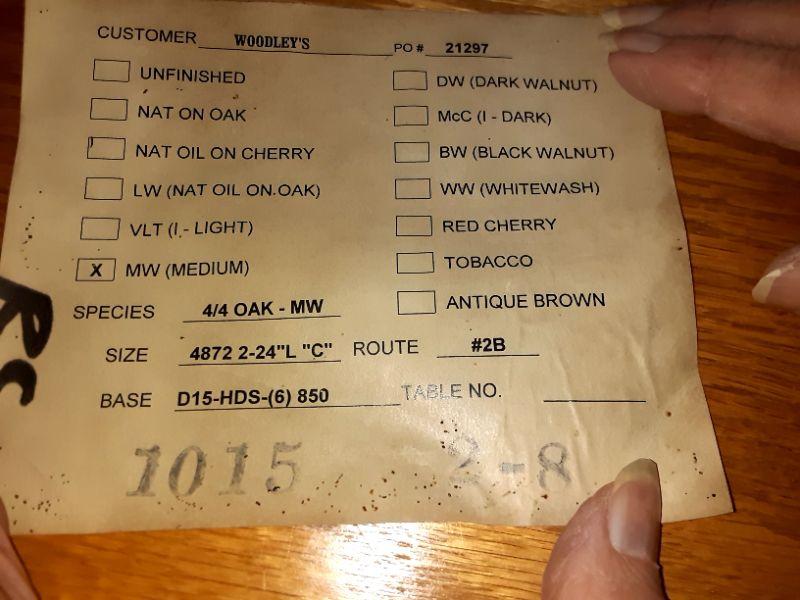 CUSTOMER WOODLEY'S PO # 21297
UNFINISHED
NAT ON OAK
NAT OIL ON CHERRY
LW (NAT OIL ON OAK)
VLT (I - LIGHT)
X MW (MEDIUM)
DW (DARK WALNUT)
McC (I - DARK)
BW (BLACK WALNUT)
WW (WHITEWASH)
RED CHERRY
TOBACCO
ANTIQUE BROWN
SPECIES 4/4 OAK - MW
SIZE 4872 2-24"L "C" ROUTE #2B
BASE D15-HDS-(6) 850 TABLE NO.
1015 2-8